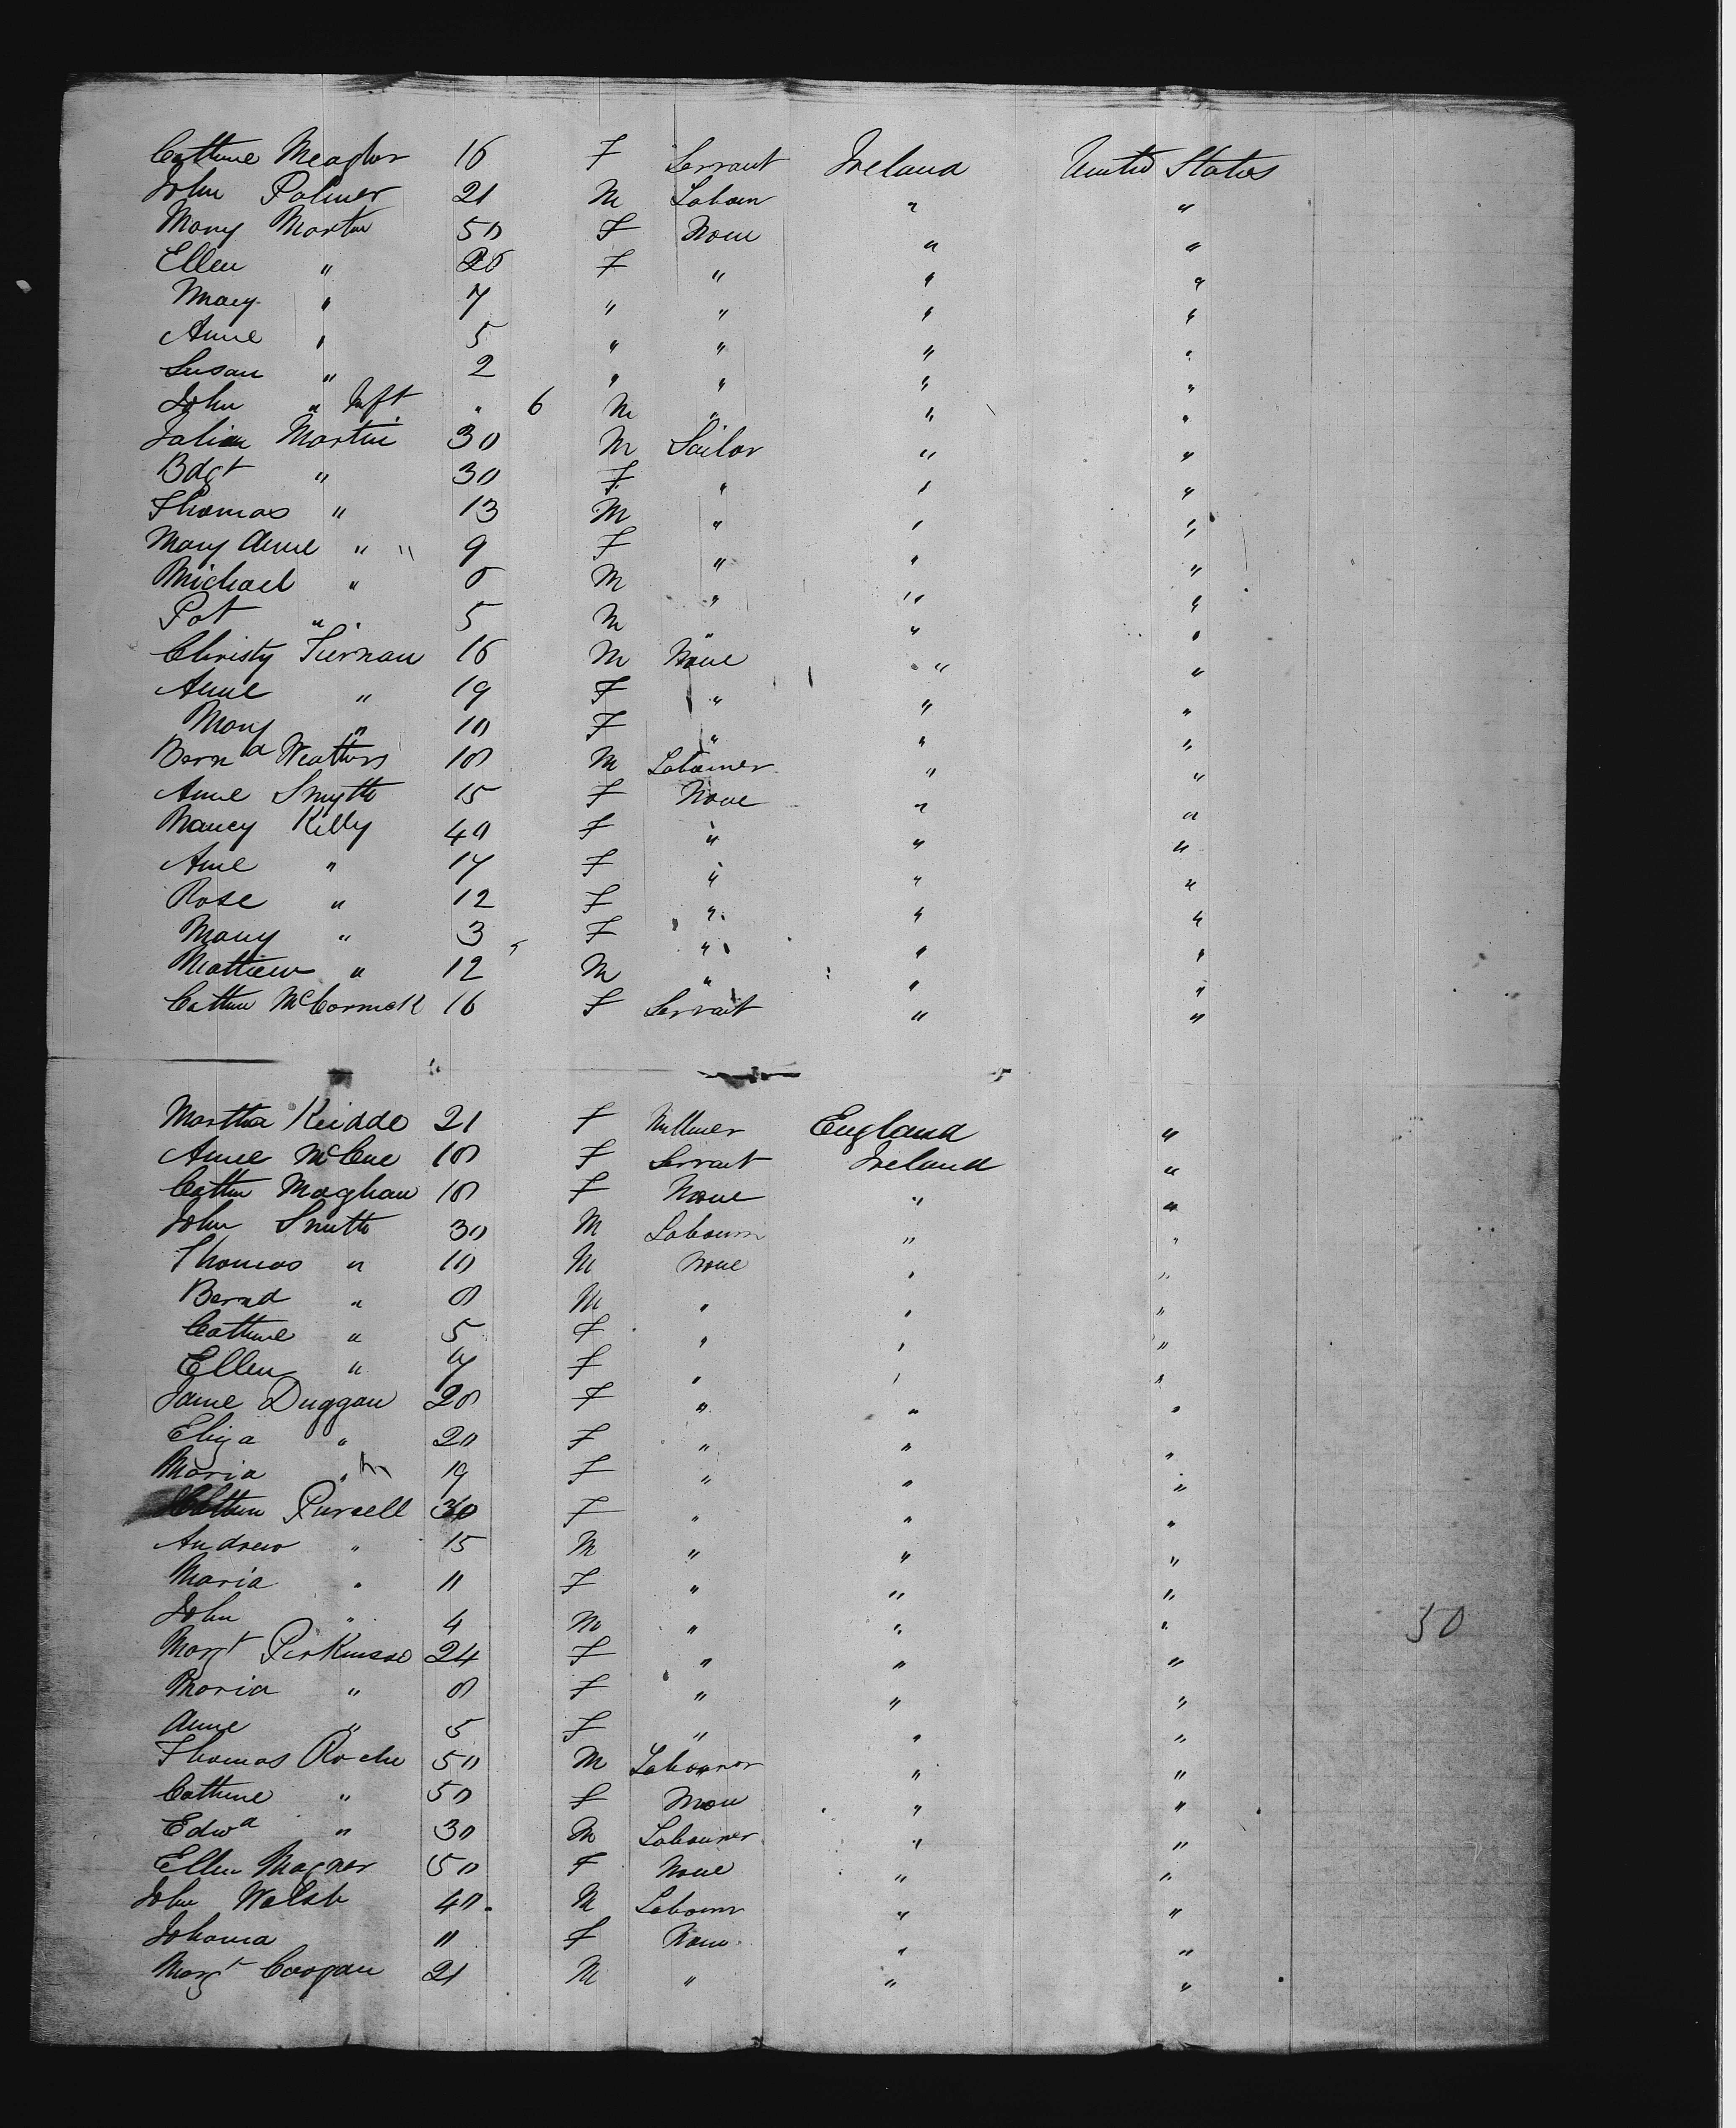 Cathine Meagher 16 F Servant Ireland United States
John Palmer 21 M Labour " "
Mary Martin 50 F None " "
Ellen " 20 F " " "
Mary " 7 " " " "
Anne " 5 " " " "
Susan " 2 " " " "
John " Inft " 6 M " " "
Martin 30 M Sailor " "
Bdgt " 30 F " " "
Thomas " 13 M " " "
Mary Anne " " 9 F " " "
Michael " 8 M " " "
Pat " 5 M " " "
Christy Tiernan 16 M None " "
Anne " 19 F " " "
Mary " 10 F " " "
Bernd Watters 18 M Labourer " "
Anne Smyth 15 F None " "
Nancy Kelly 40 F " " "
Ane " 17 F " " "
Rose " 12 F " " "
Mary " 3 F " " "
Mathiew " 12 M " " "
Cathne McCormick 16 F Servant " "
Martha 21 F Milliner England "
Anne McCue 18 F Servant Ireland "
Cathn Maghan 18 F None " "
John Smith 30 M Labourr " "
Thomas " 10 M None " "
Bernd " 8 M " " "
Cathine " 5 F " " "
Ellen " 7 F " " "
Jane Duggan 28 F " " "
Eliza " 20 F " " "
Maria " 19 F " " "
Cathne Pursell 30 F " " "
Andrew " 15 M " " "
Maria " 11 F " " "
John " 4 M " " " 50
Margt Perkinson 24 F " " "
Maria " 8 F " " "
Anne " 5 F " " "
Thomas Roche 50 M Labourer " "
Cathine " 50 F Non " "
Edwd " 30 M Labourer " "
Ellen Magner 50 F None " "
John Walsh 40 M Labourr " "
Johanna 11 F None " "
Margt Coogan 21 M " " "